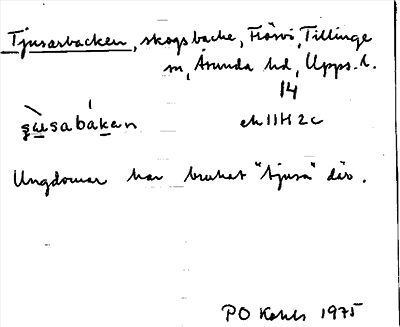 Tjusarbacken, skogsbacke, Frösvi, Tillinge
sn, Åsunda hd, Upps. l.
14
ek 11H 2c
Ungdomar har brukat "tjusa" där.
PO Kohls 1975